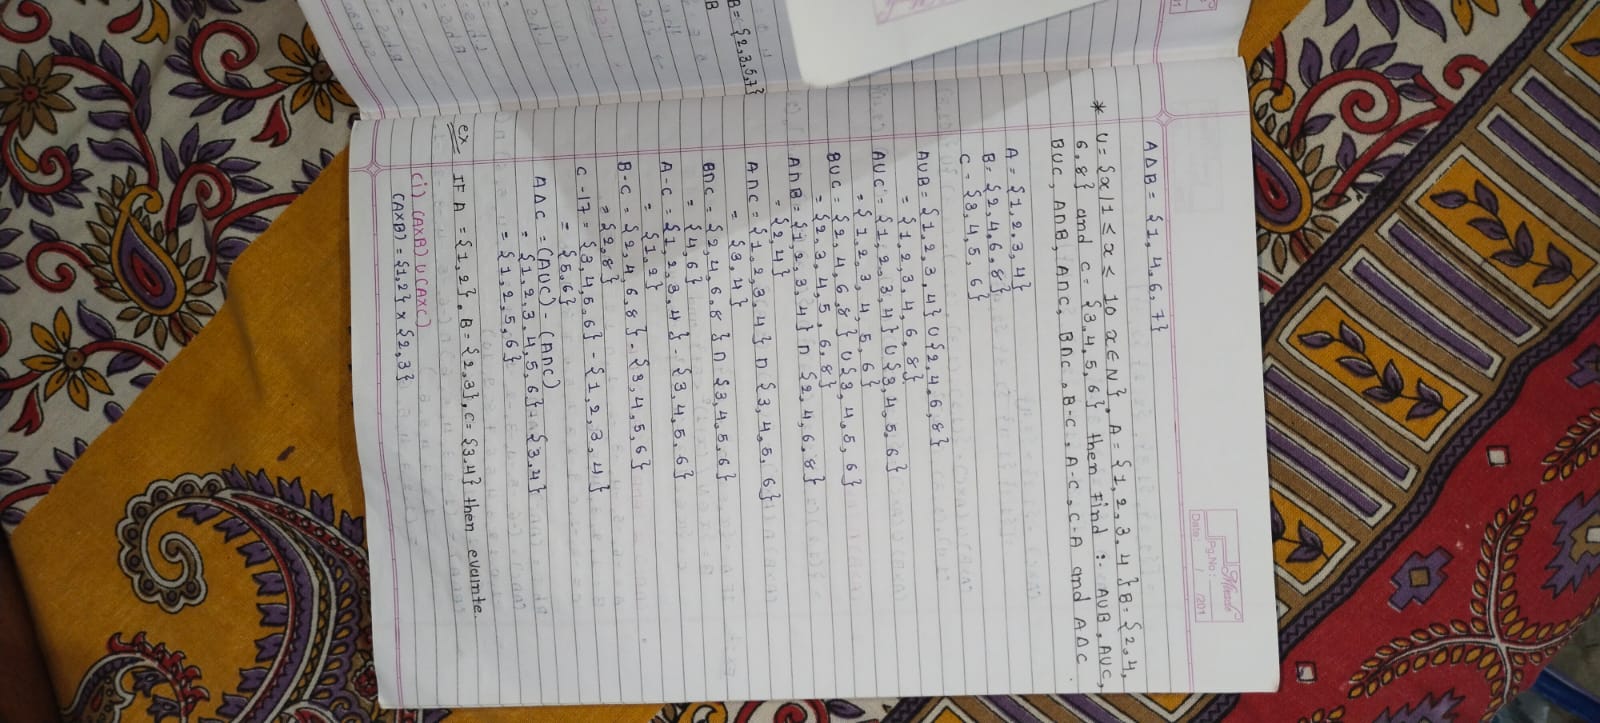 B= {2,3,5,7}
Pg.No:
Date: / /201
A∆B = {1,4,6,7}
* U = {x/1 ≤ x ≤ 10 x∈N}. A = {1,2,3,4} B= {2,4,
6,8} and C = {3,4,5,6} then find : AUB, AUC,
BUC, A∩B, A∩C, B∩C, B-C, A-C, C-A and A∆C.
A = {1,2,3,4}
B= {2,4,6,8}
C = {3,4,5,6}
AUB= {1,2,3,4} U {2,4,6,8}
= {1,2,3,4,6,8}
AUC = {1,2,3,4} U {3,4,5,6}
= {1,2,3,4,5,6}
BUC = {2,4,6,8} U {3,4,5,6}
= {2,3,4,5,6,8}
A∩B= {1,2,3,4} ∩ {2,4,6,8}
= {2,4}
A∩C = {1,2,3,4} ∩ {3,4,5,6}
= {3,4}
B∩C = {2,4,6,8} ∩ {3,4,5,6}
= {4,6}
A-C = {1,2,3,4} - {3,4,5,6}
= {1,2}
B-C = {2,4,6,8} - {3,4,5,6}
= {2,8}
C-17 = {3,4,5,6} - {1,2,3,4}
= {5,6}
A∆C = (AUC) - (A∩C)
= {1,2,3,4,5,6} - {3,4}
= {1,2,5,6}
ex IF A = {1,2}, B= {2,3}, C= {3,4} then evalnte.
(i) (A×B) U (A×C)
(A×B) = {1,2} × {2,3}